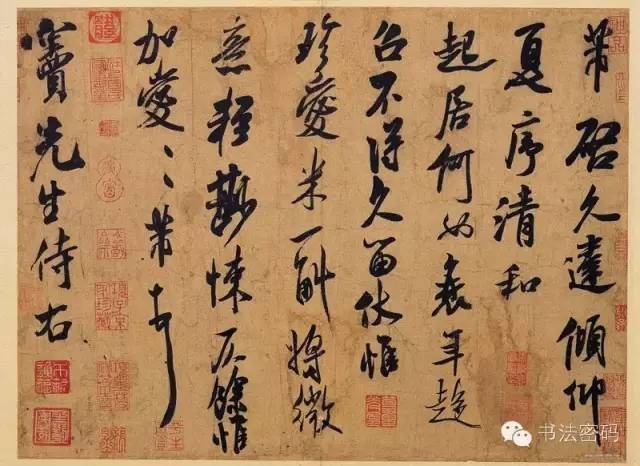 芾啓久違傾仰
夏序清和
起居何如衰年趨
召不得久留伏惟
珍愛米一斛將微
意輕鮮悚仄餘惟
加愛、、芾頓首
竇先生侍右
书法密码